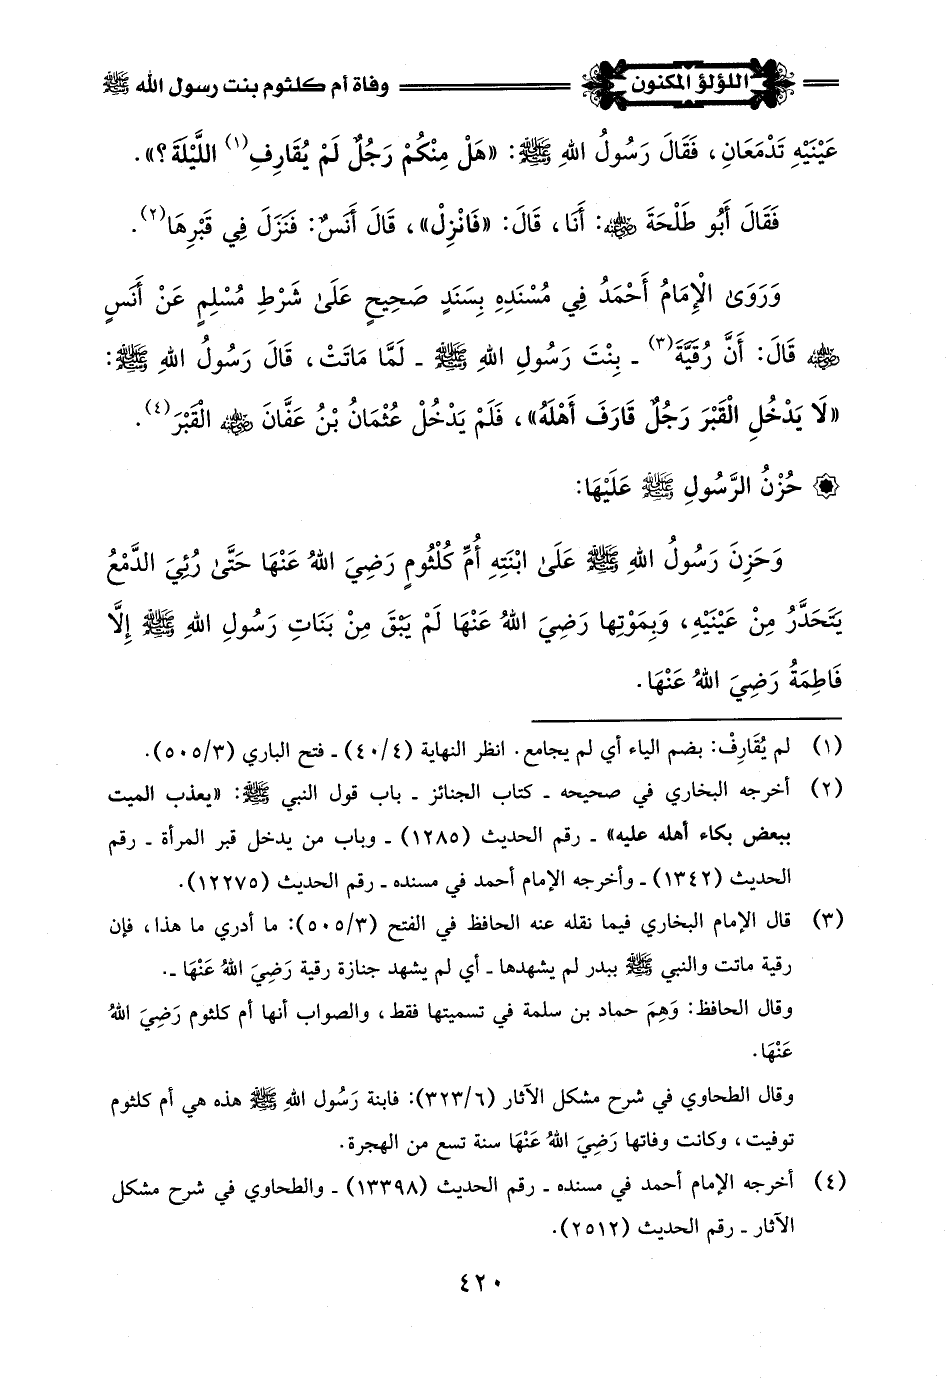 اللؤلؤ المكنون
وفاة أم كلثوم بنت رسول الله ﷺ
عَيْنَيْهِ تَدْمَعَانِ، فَقَالَ رَسُولُ اللهِ ﷺ: «هَلْ مِنْكُمْ رَجُلٌ لَمْ يُقَارِفِ(١) اللَّيْلَةَ؟».
فَقَالَ أَبُو طَلْحَةَ رضي الله عنه: أَنَا، قَالَ: «فَانْزِلْ»، قَالَ أَنَسٌ: فَنَزَلَ فِي قَبْرِهَا(٢).
وَرَوَىٰ الْإِمَامُ أَحْمَدُ فِي مُسْنَدِهِ بِسَنَدٍ صَحِيحٍ عَلَىٰ شَرْطِ مُسْلِمٍ عَنْ أَنَسٍ
رضي الله عنه قَالَ: أَنَّ رُقَيَّةَ(٣) ـ بِنْتَ رَسُولِ اللهِ ﷺ ـ لَمَّا مَاتَتْ، قَالَ رَسُولُ اللهِ ﷺ:
«لَا يَدْخُلِ الْقَبْرَ رَجُلٌ قَارَفَ أَهْلَهُ»، فَلَمْ يَدْخُلْ عُثْمَانُ بْنُ عَفَّانَ رضي الله عنه الْقَبْرَ(٤).
حُزْنُ الرَّسُولِ ﷺ عَلَيْهَا:
وَحَزِنَ رَسُولُ اللهِ ﷺ عَلَىٰ ابْنَتِهِ أُمِّ كُلْثُومٍ رَضِيَ اللهُ عَنْهَا حَتَّىٰ رُئِيَ الدَّمْعُ
يَتَحَدَّرُ مِنْ عَيْنَيْهِ، وَبِمَوْتِهَا رَضِيَ اللهُ عَنْهَا لَمْ يَبْقَ مِنْ بَنَاتِ رَسُولِ اللهِ ﷺ إِلَّا
فَاطِمَةُ رَضِيَ اللهُ عَنْهَا.
(١) لم يُقَارِفْ: بضم الياء أي لم يجامع. انظر النهاية (٤/٤٠) ـ فتح الباري (٣/٥٠٥).
(٢) أخرجه البخاري في صحيحه ـ كتاب الجنائز ـ باب قول النبي ﷺ: «يعذب الميت
ببعض بكاء أهله عليه» ـ رقم الحديث (١٢٨٥) ـ وباب من يدخل قبر المرأة ـ رقم
الحديث (١٣٤٢) ـ وأخرجه الإمام أحمد في مسنده ـ رقم الحديث (١٢٢٧٥).
(٣) قال الإمام البخاري فيما نقله عنه الحافظ في الفتح (٣/٥٠٥): ما أدري ما هذا، فإن
رقية ماتت والنبي ﷺ ببدر لم يشهدها ـ أي لم يشهد جنازة رقية رَضِيَ اللهُ عَنْهَا ـ.
وقال الحافظ: وَهِمَ حماد بن سلمة في تسميتها فقط، والصواب أنها أم كلثوم رَضِيَ اللهُ
عَنْهَا.
وقال الطحاوي في شرح مشكل الآثار (٦/٣٢٣): فابنة رَسُول اللهِ ﷺ هذه هي أم كلثوم
توفيت، وكانت وفاتها رَضِيَ اللهُ عَنْهَا سنة تسع من الهجرة.
(٤) أخرجه الإمام أحمد في مسنده ـ رقم الحديث (١٣٣٩٨) ـ والطحاوي في شرح مشكل
الآثار ـ رقم الحديث (٢٥١٢).
٤٢٠